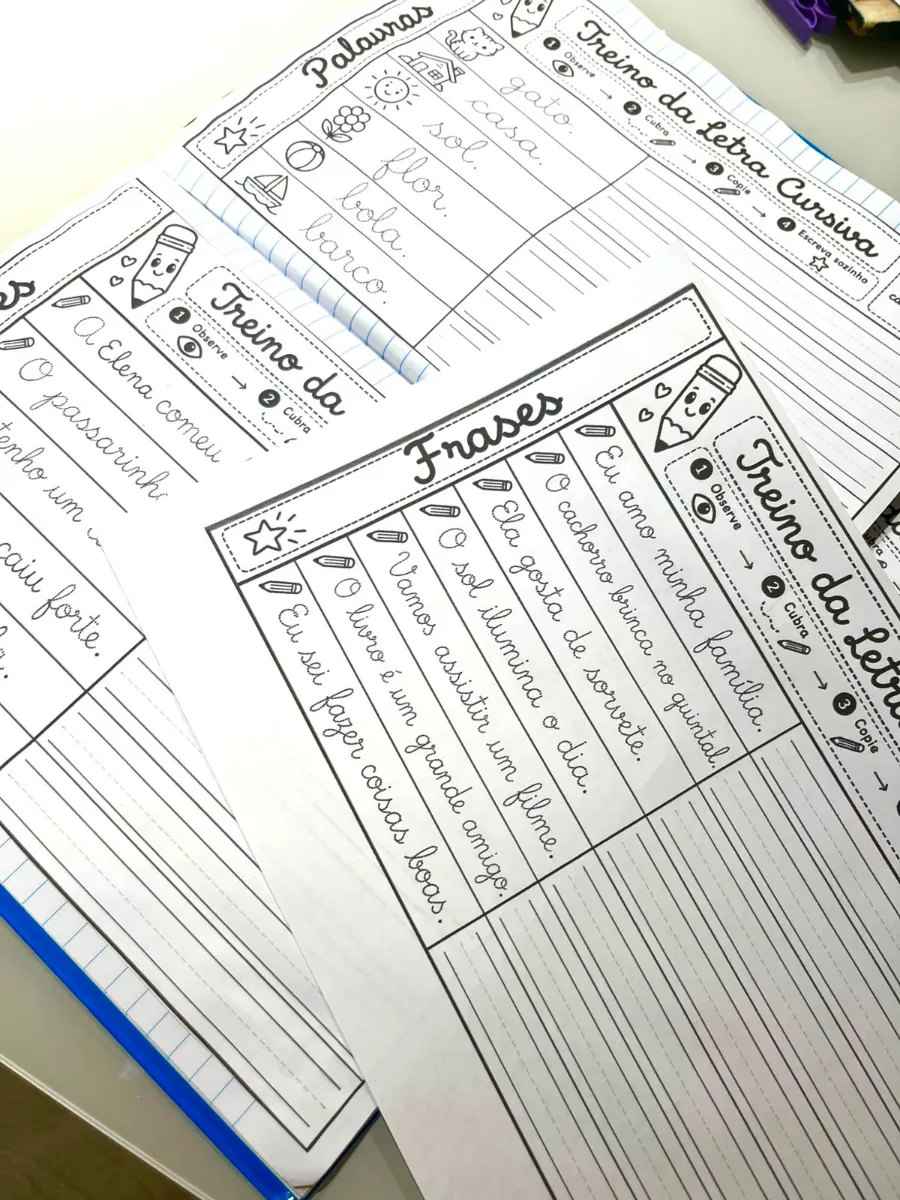 Palavras
Treino da Letra Cursiva
1 Observe → 2 Cubra → 3 Copie → 4 Escreva sozinho
gato.
casa.
sol.
flor.
bola.
barco.
Treino da
1 Observe → 2 Cubra
A Elena comeu
O
tenho um
caiu forte.
Frases
Treino da
1 Observe → 2 Cubra → 3 Copie →
Eu amo minha família.
O cachorro brinca no quintal.
Ela gosta de sorvete.
O sol ilumina o dia.
Vamos assistir um filme.
O livro é um grande amigo.
Eu sei fazer coisas boas.